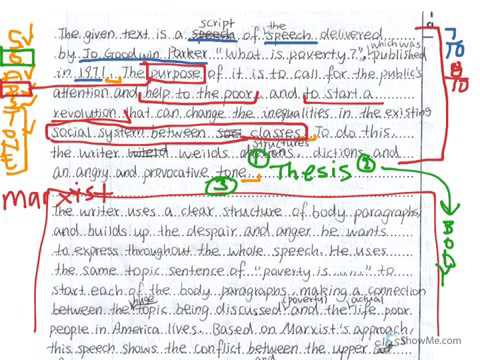 script the
The given text is a speech of speech delivered
by Jo Goodwin Parker "What is poverty?", which was published
in 1971. The purpose of it is to call for the public's
attention and help to the poor and to start a
revolution that can change the inequalities in the existing
social system between classes. To do this
the writer weilds structures dictions and
an angry and provocative tone
① Thesis ②
③
marxist
BOD
The writer uses a clear structure of body paragraphs
and builds up the despair and anger he wants
to express throughout the whole speech. He uses
the same topic sentence of "poverty is ........" to
start each of the body paragraphs, making a connection
huge (poverty) (actual)
between the topic being discussed and the life poor
people in America lives. Based on Marxist's approach
this speech shows the conflict between the upper class
ShowMe.com
7/10
8/10